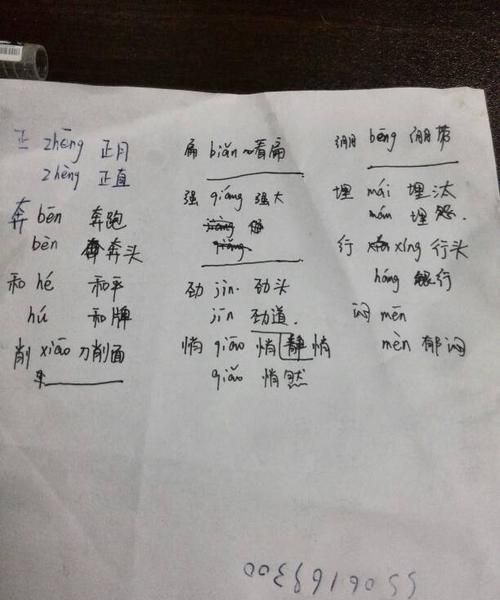 正 zhēng 正月
zhèng 正直
奔 bēn 奔跑
bèn 奔头
和 hé 和平
hú 和牌
削 xiāo 刀削面
扁 biǎn 看扁
强 qiáng 强大
劲 jìn 劲头
jìn 劲道
悄 qiāo 悄静悄
qiǎo 悄然
绷 bēng 绷带
埋 mái 埋汰
mán 埋怨
行 xíng 行头
háng 银行
闷 mēn
mèn 郁闷
5506169300